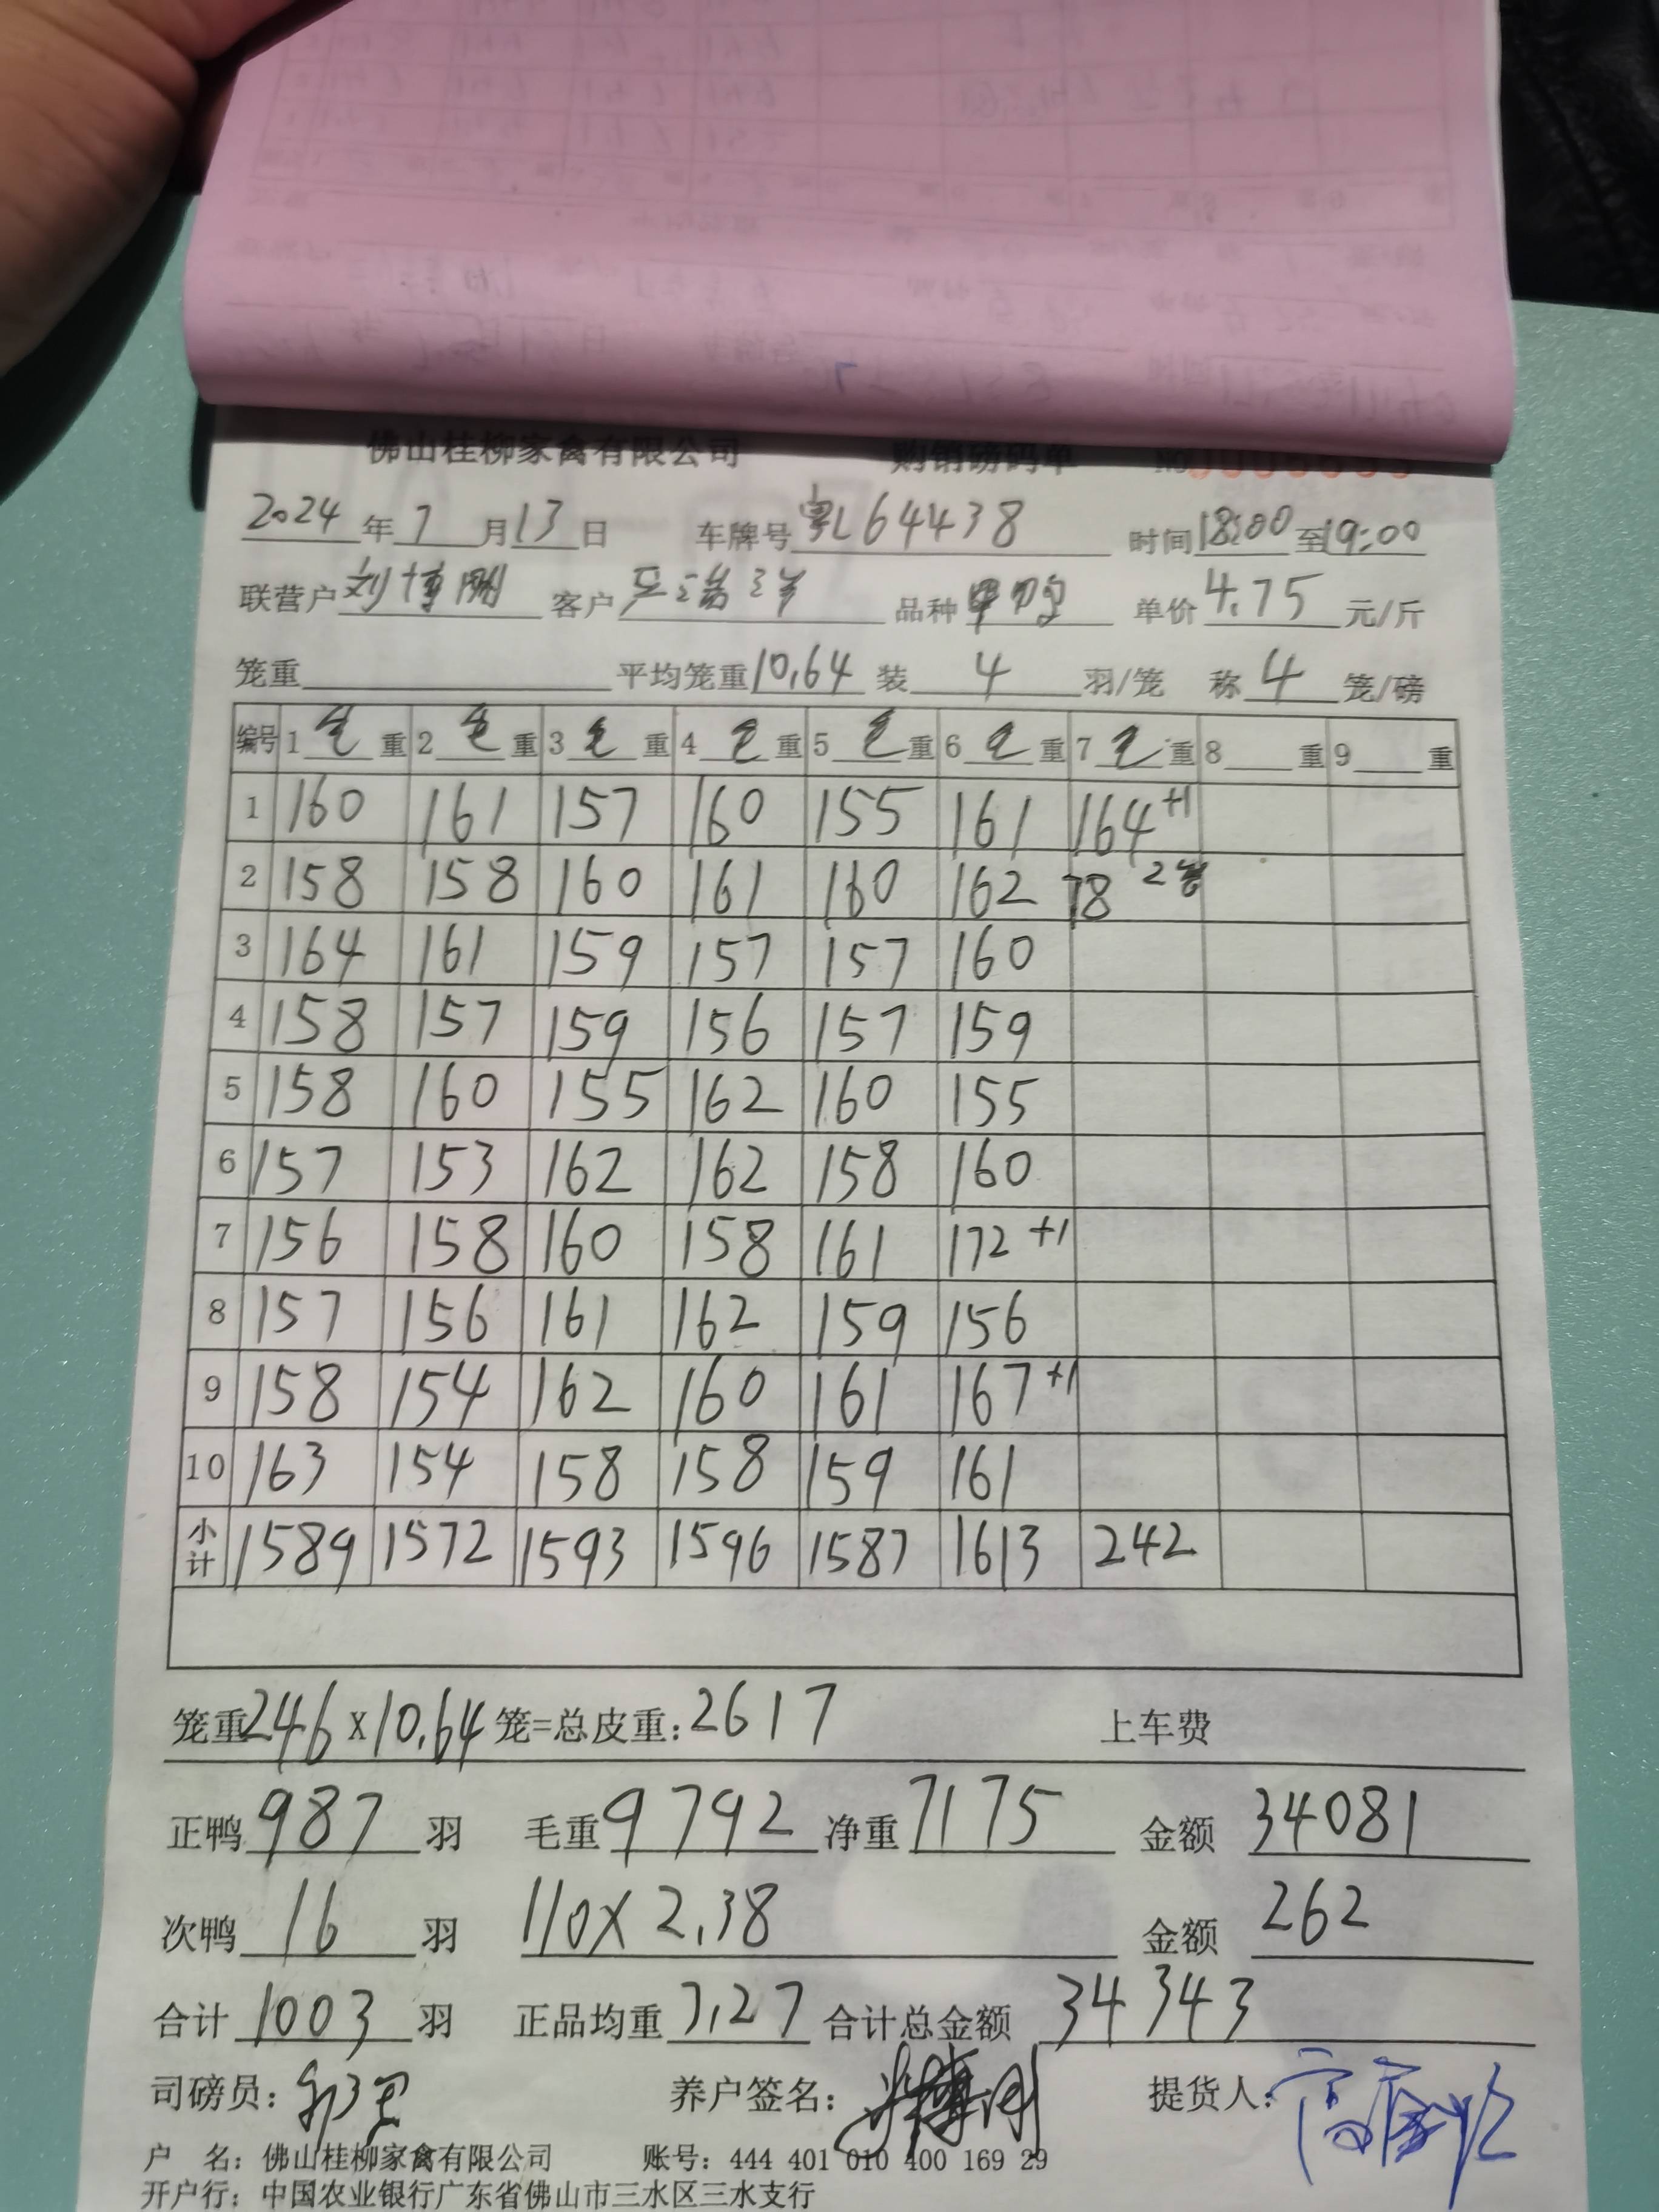 佛山桂柳家禽有限公司 购销磅码单 No
2024年7月13日 车牌号 粤L64438 时间 18:00 至 19:00
联营户 刘博刚 客户 品种 单价 4.75 元/斤
笼重 平均笼重 10.64 装 4 羽/笼 称 4 笼/磅
编号 1 毛 重 2 毛 重 3 毛 重 4 毛 重 5 毛 重 6 毛 重 7 毛 重 8 重 9 重
1 160 161 157 160 155 161 164+1
2 158 158 160 161 160 162 78 2笼
3 164 161 159 157 157 160
4 158 157 159 156 157 159
5 158 160 155 162 160 155
6 157 153 162 162 158 160
7 156 158 160 158 161 172+1
8 157 156 161 162 159 156
9 158 154 162 160 161 167+1
10 163 154 158 158 159 161
小计 1589 1572 1593 1596 1587 1613 242
笼重 246 X 10.64 笼=总皮重: 2617 上车费
正鸭 987 羽 毛重 9792 净重 7175 金额 34081
次鸭 16 羽 110X2.38 金额 262
合计 1003 羽 正品均重 7.27 合计总金额 34343
司磅员: 养户签名: 提货人:
户 名: 佛山桂柳家禽有限公司 账号: 444 401 010 400 169 29
开户行: 中国农业银行广东省佛山市三水区三水支行